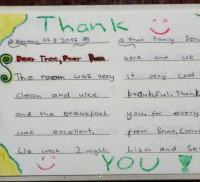 Thank
@ Monday, 14.8.2017 @
@ From Family Den
Dear Tree, Dear Dom
The room was very
clean and nice
and the breakfast
was excellent.
We was 2 nigh
here and we
it very cool
beautiful. Thank
you, for every
from Bruno,
Lisa and Se
YOU